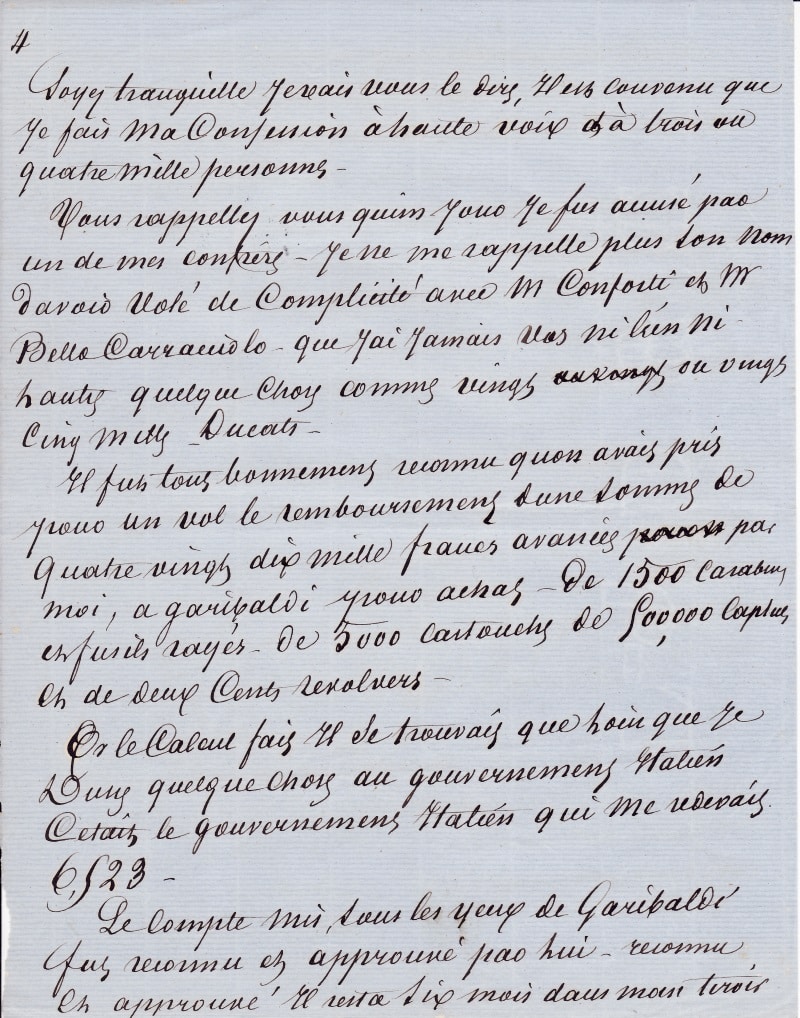 4
Soyez tranquille Je vais vous le dire, Il est convenu que
Je fais Ma Confession à haute voix et à trois ou
quatre Mille personnes –
Vous rappellez vous qu'un Jour Je fus accusé par
un de mes confrères – Je ne me rappelle plus son nom
d'avoir Volé de Complicité avec M Conforti et Mr
Bello Carracciolo – que J'ai Jamais vus ni l'un ni
l'autre quelque Chose comme vingt ou vingt
Cinq Mille Ducats –
Il fut tout bonnement reconnu qu'on avait pris
pour un vol le remboursement d'une somme de
quatre vingt dix mille francs avancés par
moi, a garibaldi pour achat – de 1500 Carabines
et fusils rayés – de 5000 cartouches de 500,000 Capsules
et de deux Cents revolvers –
Or le Calcul fait Il Se trouvait que loin que Je
Dusse quelque Chose au gouvernement Italien
C'etait le gouvernement Italien qui me redevait
6,523 –
Le Compte mis, sous les yeux de Garibaldi
fut reconnu et approuvé par lui – reconnu
et approuvé Il resta Six mois dans mon tiroir